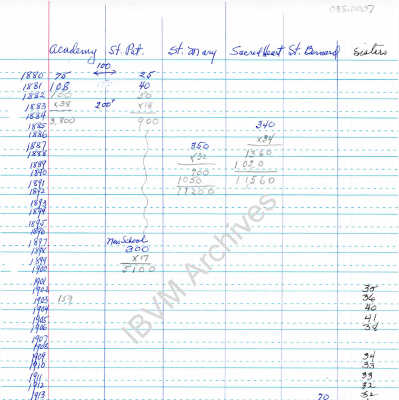 Academy St. Pat. St. Mary Sacred Heart St. Bernard Sisters
100
1880 75 25
1881 108 40
1882 100 50
1883 x38 200 x18
1884 3800 900
1885 340
1886 x34
1887 350 1360
1888 x32 1020
1889 700 11560
1890 1050
1891 11200
1892
1893
1894
1895
1896
1897 New School
1898 300
1899 x17
1900 5100
1901
1902 35
1903 159 36
1904 40
1905 41
1906 38
1907
1908
1909 34
1910 33
1911 33
1912 32
1913 70 32
IBVM Archives